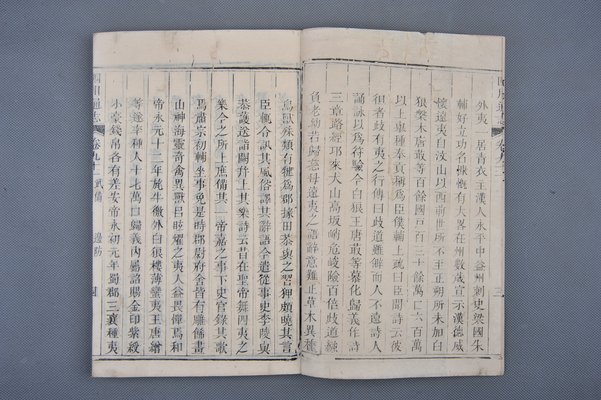 外夷一居青衣王漢人永平中益州刺史梁國朱
輔好立功名慷慨有大畧在州數歲宣示漢德威
懷遠夷自汶山以西前世所不至正朔所未加白
狼槃木唐菆等百餘國戶百三十餘萬口六百萬
以上舉種奉貢稱爲臣僕輔上疏曰臣聞詩云彼
徂者岐有夷之行傳曰岐道雖僻而人不遠詩人
誦詠以爲符驗今白狼王唐菆等慕化歸義作詩
三章路經邛來大山高坂峭危峻險百倍岐道繈
負老幼若歸慈母遠夷之語辭意難正草木異種
鳥獸殊類有犍爲郡掾田恭與之習狎頗曉其言
臣輒令訊其風俗譯其辭語今遣從事史李陵與
恭護送詣闕幷上其樂詩云昔在聖帝舞四夷之
樂今之所上庶備其一帝嘉之事下史官錄其歌
焉肅宗初輔坐事免是時郡尉府舍皆有雕飾畫
山神海靈奇禽異獸以眩燿之夷人益畏憚焉和
帝永元十二年旄牛徼外白狼樓薄蠻夷王唐繒
等遂率種人十七萬口歸義內屬詔賜金印紫綬
小豪錢帛各有差安帝永初元年蜀郡三襄種夷
四川通志 卷九十二 武備 邊防